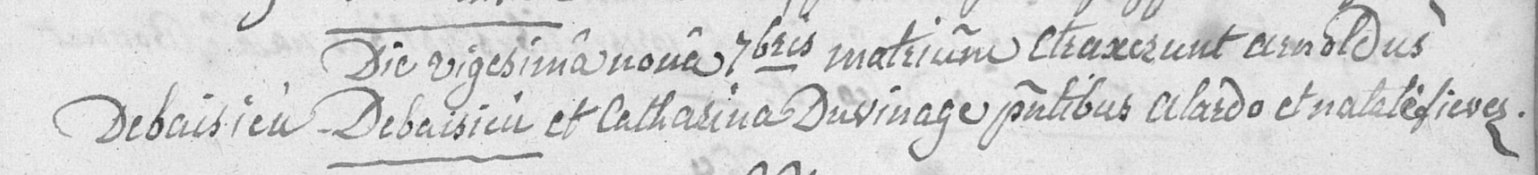 Die vigesimâ nonâ 7bris matriūm ctraxerunt arnoldus
Debaisieu Debaisieu et Catharina Duvinage pñtibus alardo et natale fievez.